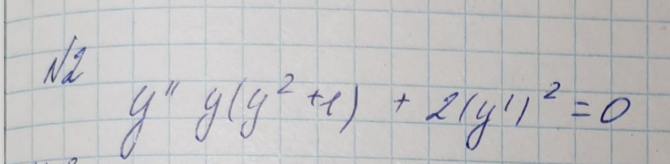 №2
y'' y(y² + 1) + 2(y')² = 0